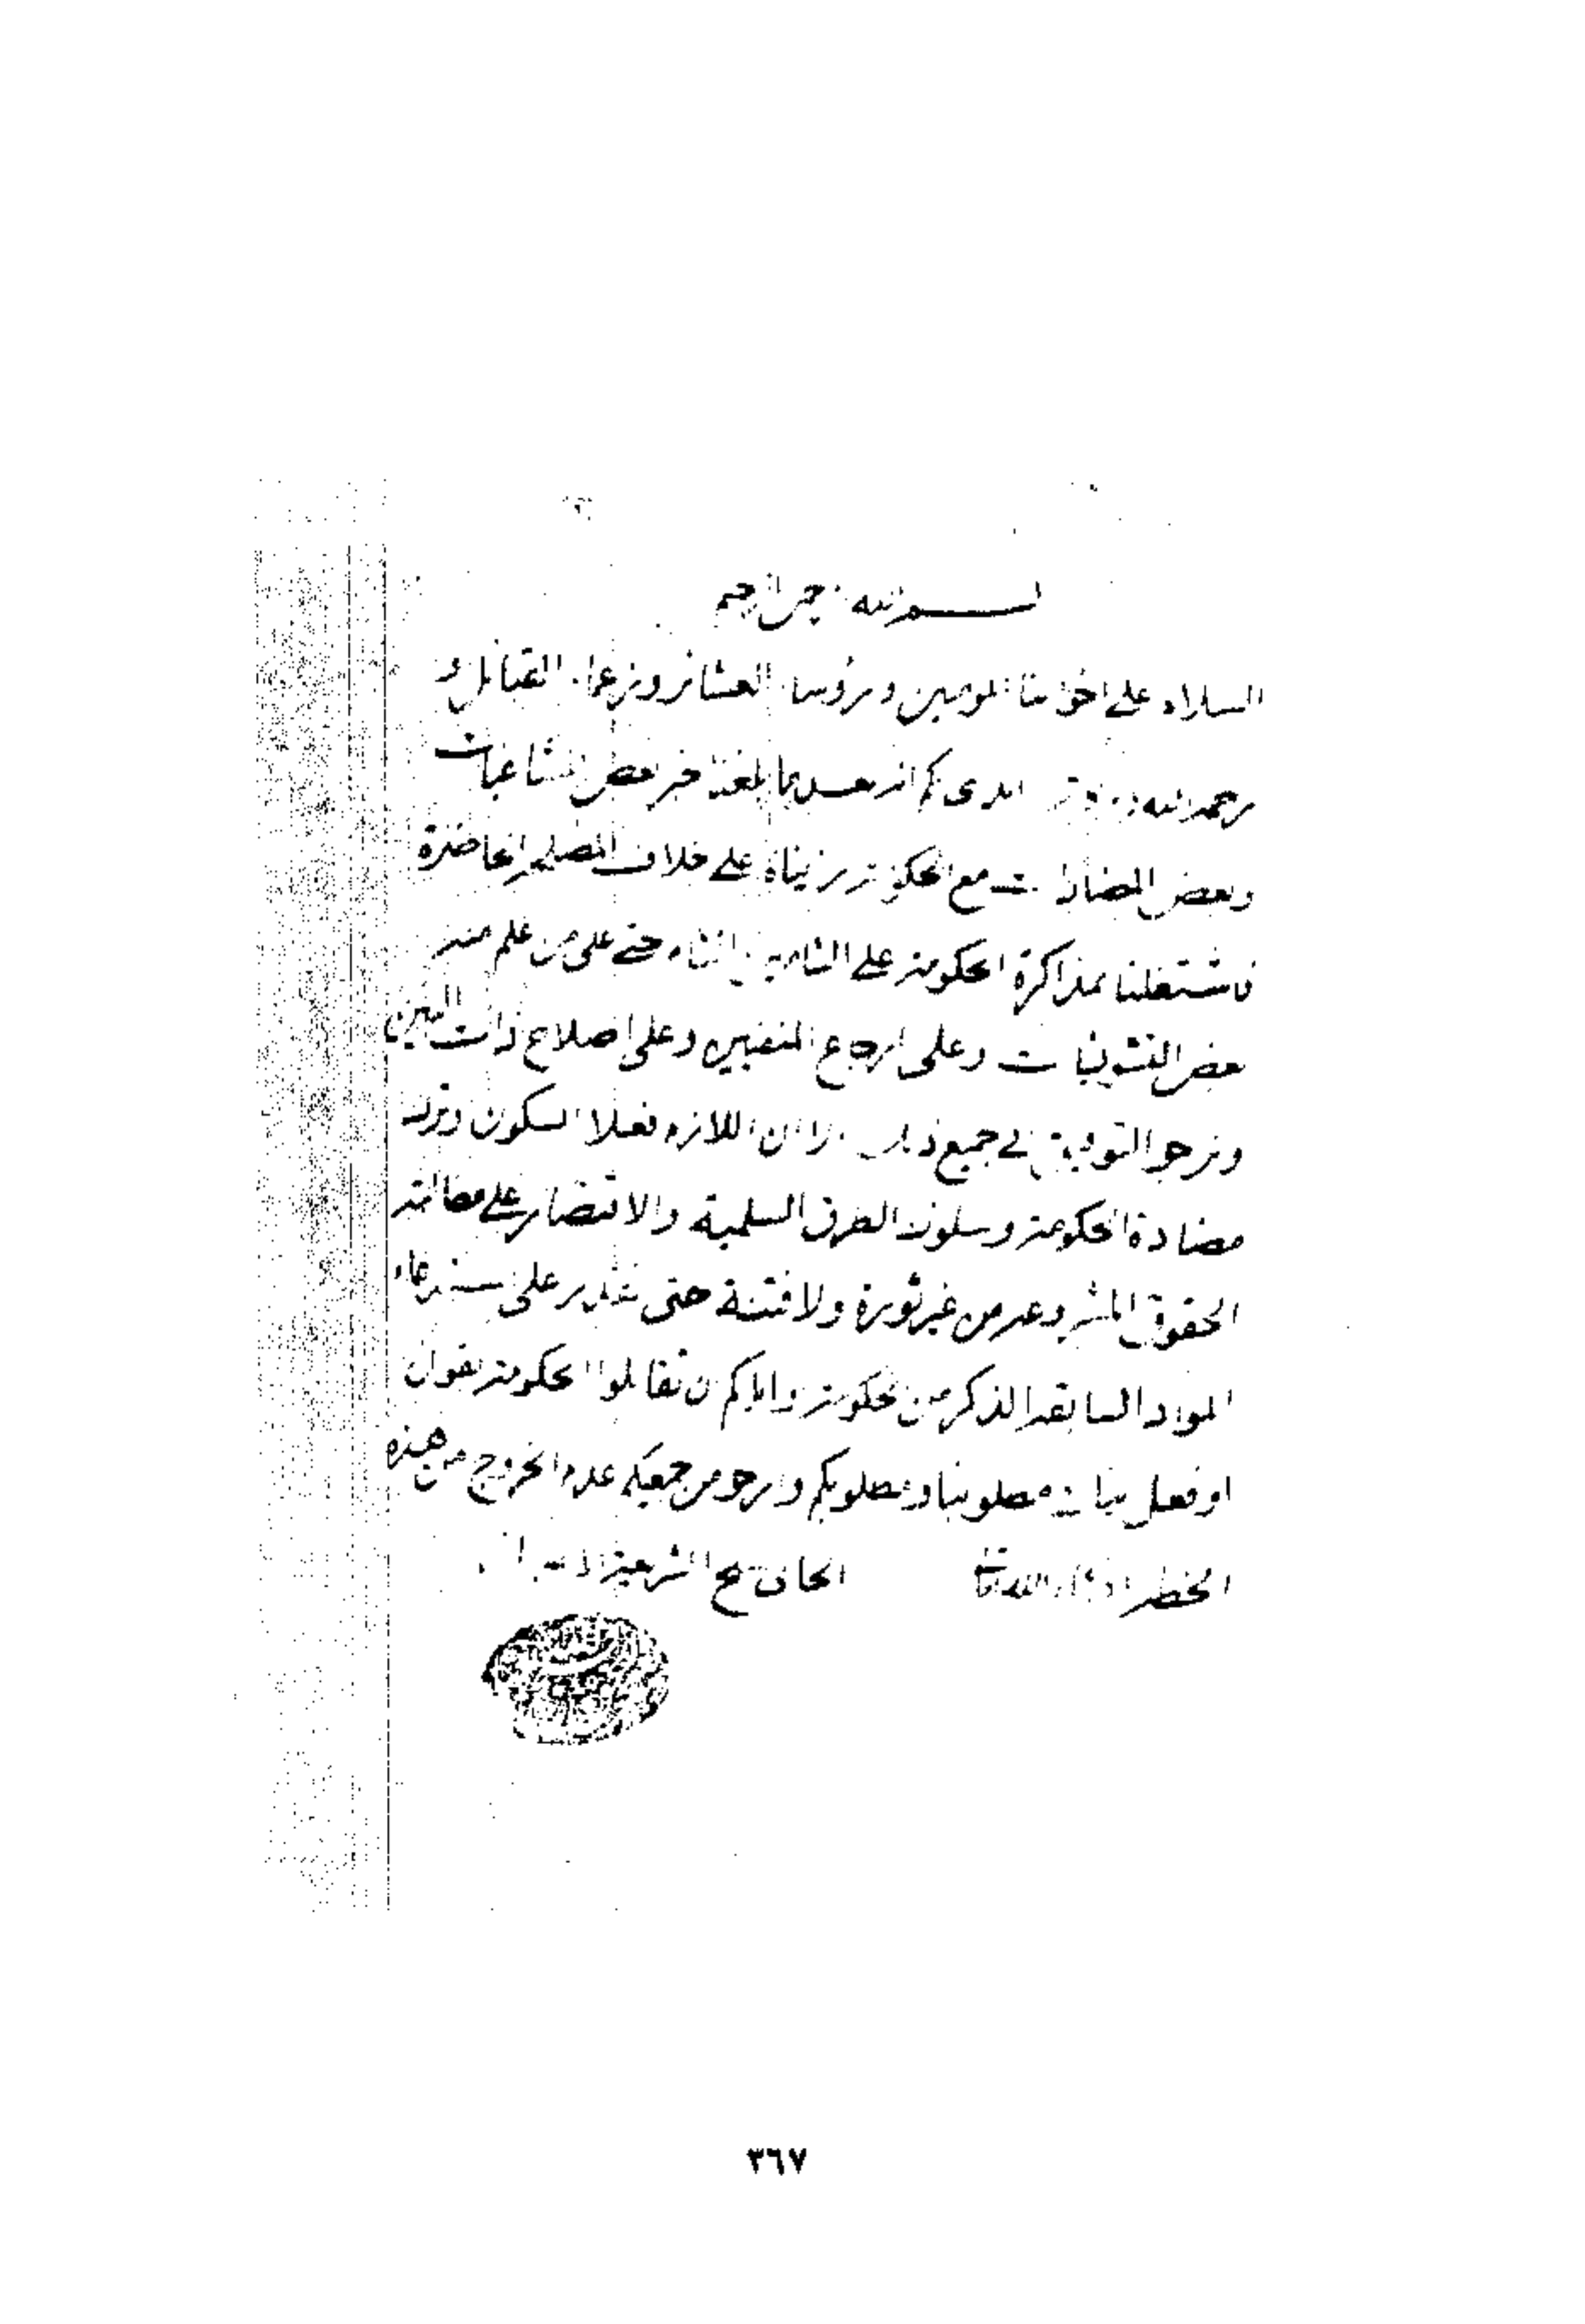 بسم الله الرحمن الرحيم
السلام على اخواننا المومنين ورؤساء العشائر وزعماء القبائل و
رحمة الله وبركاته ابدى لكم انه بعد ما بلغنا خبر بعض المشاغبات
وبعض المضادات مع الحكومة على خلاف المصلحة الحاضرة
فاشتغلنا بمذاكرة الحكومة على التامين حتى على من علم منه
بعض التشويقات وعلى ارجاع المنفيين وعلى اصلاح ذات البين
ونرجو التوفيق في جميع ذلك الا ان اللازم فعلا السكون وترك
مضادة الحكومة وسلوك الطرق السلمية والاقتصار على مطالبة
الحقوق المشروعة من غير ثورة ولا فتنة حتى نقدر على استدعاء
المواد السابقة الذكر من الحكومة واياكم ان تقابلوا الحكومة بقول
او فعل ينافي مطلوبنا ومطلوبكم وارجو من جميعكم عدم الخروج من هذه
الخطة ان شاء الله تعالى الجاني شيخ الشريعة
٣٦٧